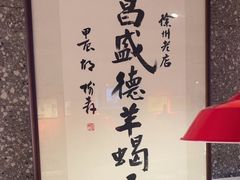 徐州老店
昌盛德羊蝎
甲辰